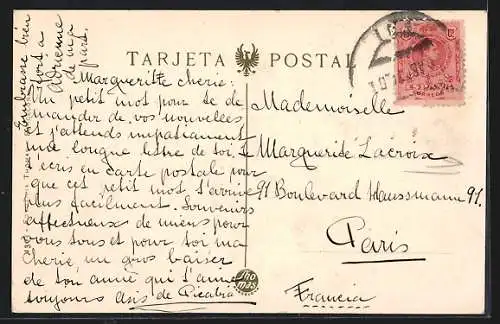 Embrasse bien
fort a
Adrienne
de ma
part.
TARJETA POSTAL
Margueritte cherie:
Un petit mot pour te de
mander de vos nouvelles
et j'attends impatiament
une longue lettre de toi. Je
t'ecris en carte postale pour
que cet petit mot t'arrive
plus facilement. Souvenirs
affectueux de miens pour
vous tous et pour toi ma
cherie, un gros baiser
de ton amie qui t'aime
toujours Asis de Picabia
Mademoiselle
Marguerite Lacroix
91 Boulevard Haussmann 91.
Paris
Francia
Tho
mas